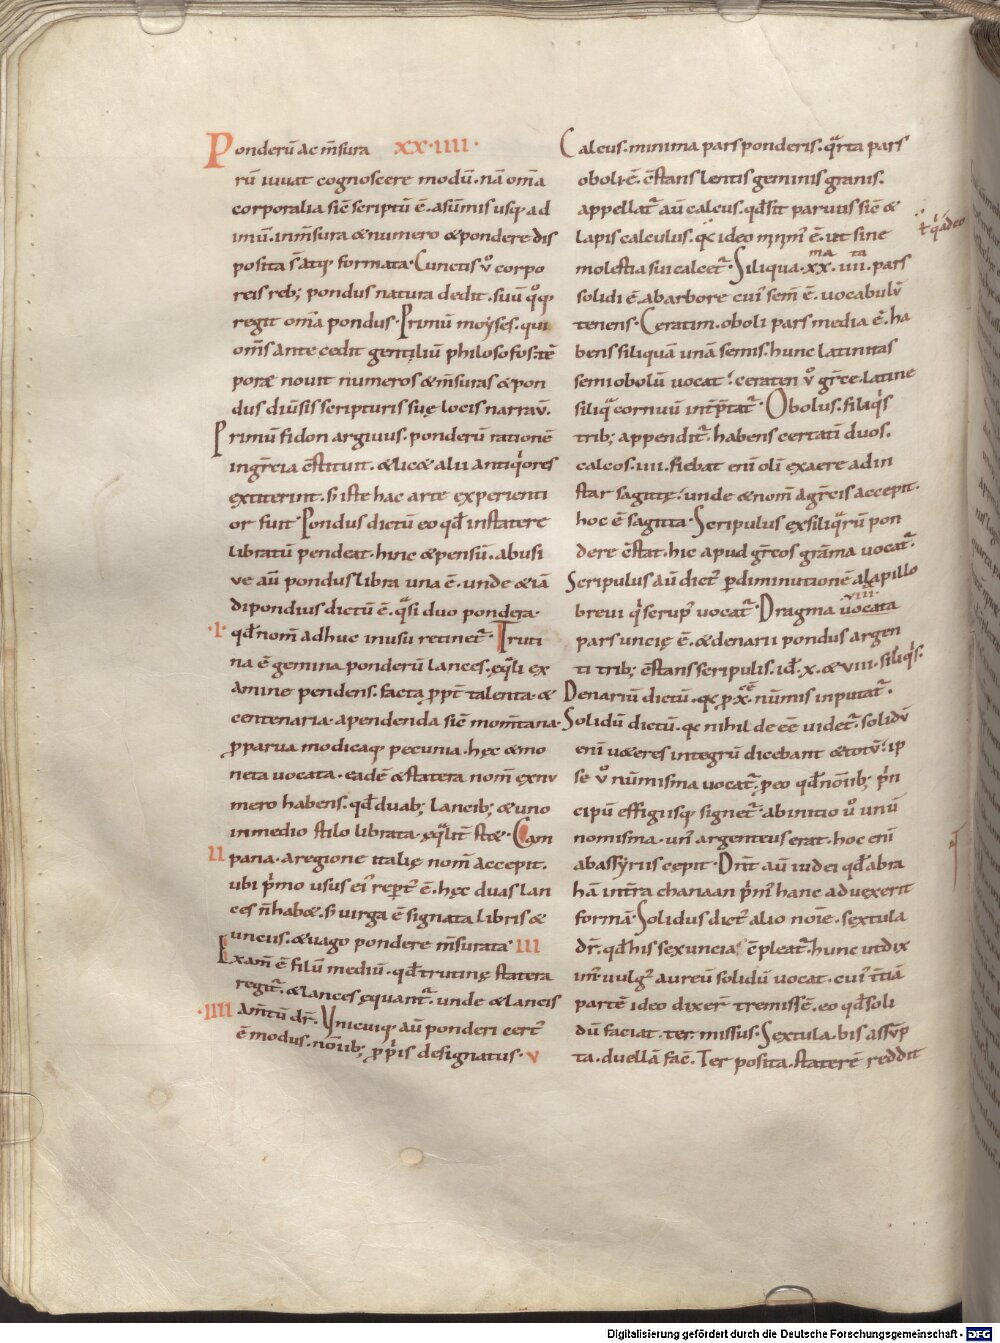 Ponderū ac m̄sura XX·IIII·
rū iuuat cognoscere modū. nā om̄a
corporalia sic̄ scriptū ē. asūmis usq; ad
imū. inm̄sura & numero & pondere dis
posita s̄ atq; formata. Cunctis ů corpo
reis reb; pondus natura dedit. suū qͦq;
regit om̄a pondus. Primū moẏses. qui
om̄s ante cedit gentiliū philosofos. tē
porę nouit numeros & m̄suras & pon
dus diūsis scripturis suę locis narrav̄.
Primū fidon argiuus. ponderū rationē
ingr̄cia c̄stituit. & lic& alii antiqͥores
extiterint. sꝫ iste hac arte experienti
or fuit. Pondus dictū eo qđ instatere
libratū pendeat. hinc & pensū. abusi
ve aū pondus libra una ē. unde & iā
dipondius dictū ē. qͣsi duo pondera.
·I· qđ nom̄ adhuc inusu retinet᷑. Truti
na ē gemina ponderū lances. ęqͣli ex
amine pendens. facta ꝓpt̄ talenta. &
centenaria. apendenda sic̄ mom̄tana.
ꝓparua modicaq; pecunia. hęc & mo
neta uocata. eadē & statera nom̄ exnu
mero habens. qđ duab; lancib; & uno
inmedio stilo librata. ęqͣlit̄ st&. Cam
II pana. aregione italię nom̄ accepit.
ubi pͥmo usus eiꝰ rep̄t᷑ ē. hęc duas lan
ces n̄ hab&. sꝫ uirga ē signata libris &
uncus. & uago pondere m̄surata. III
Exam̄ ē filū mediū. qđ trutinę statera
regit᷑. & lances ęquant᷑. unde & lancis
·IIII am̄tū dr̄. Vnicuiq; aū ponderi cert᷑
ē modus. nōīib; ꝓp̄is designatus. V
Calcus. minima pars ponderis. qͣrta pars
oboli ē. c̄stans lentis geminis granis.
appellat᷑ aū calcus. qđ sit paruus sic̄ &
lapis calculus. qꝫ ideo minimꝰ ē. ut sine
molestia sui calcet᷑. Siliqua. xx. iiii. pars
ma ta
solidi ē. abarbore cuiꝰ sem̄ ē. uocabulū
tenens. Ceratim. oboli pars media ē. ha
bens siliquā unā semis. hunc latinitas
semiobolū uocat. ceraten ů gr̄ce. latine
siliqͣ cornuū int̄p̄tat᷑. Obolus. siliqͥs
trib; appendit᷑. habens certati duos.
calcos. iiii. fiebat enī olī exaere adin
star sagittę. unde & nom̄ agr̄cis accepit.
hoc ē sagitta. Scripulus exsiliqͣrū pon
dere c̄stat. hic apud gr̄cos gram̄a uocat᷑.
Scripulus aū dict᷑ ꝑdiminutionē alapillo
brevi qͥ scrup᷑ uocat᷑. Dragma uocata
viii.
pars uncię ē. & denarii pondus argen
ti trib; c̄stans scripulis. id̄. x. & viii. siliqͥs.
Denariū dictū. qꝫ ꝓ x. nūmis inputat᷑.
Solidū dictū. qꝫ nihil de eē uidet᷑. solidū
enī u&eres integrū dicebant & totū. ip
se ů nūmisma uocat᷑. ꝓeo qđ nōīib; pͥn
cipū effigiisq; signet᷑. abinitio ů unū
nomisma. unꝰ argenteus erat. hoc enī
abassyriis cepit. Dn̄t aū iudei qđ abra
hā int̄ra chanaan pͥmꝰ hanc aduexerit
formā. Solidus dict᷑ alio noīe. sextula
dr̄. qđ his sex uncia ē pleat᷑. hunc ut dix
imꝰ uulgꝰ aureū solidū uocat. cuiꝰ t̄tiā
partē ideo dixer̄ tremissē. eo qđ soli
dū faciat. ter. missus. Sextula. bis assūp
ta. duellā fac̄. Ter posita. staterē reddit